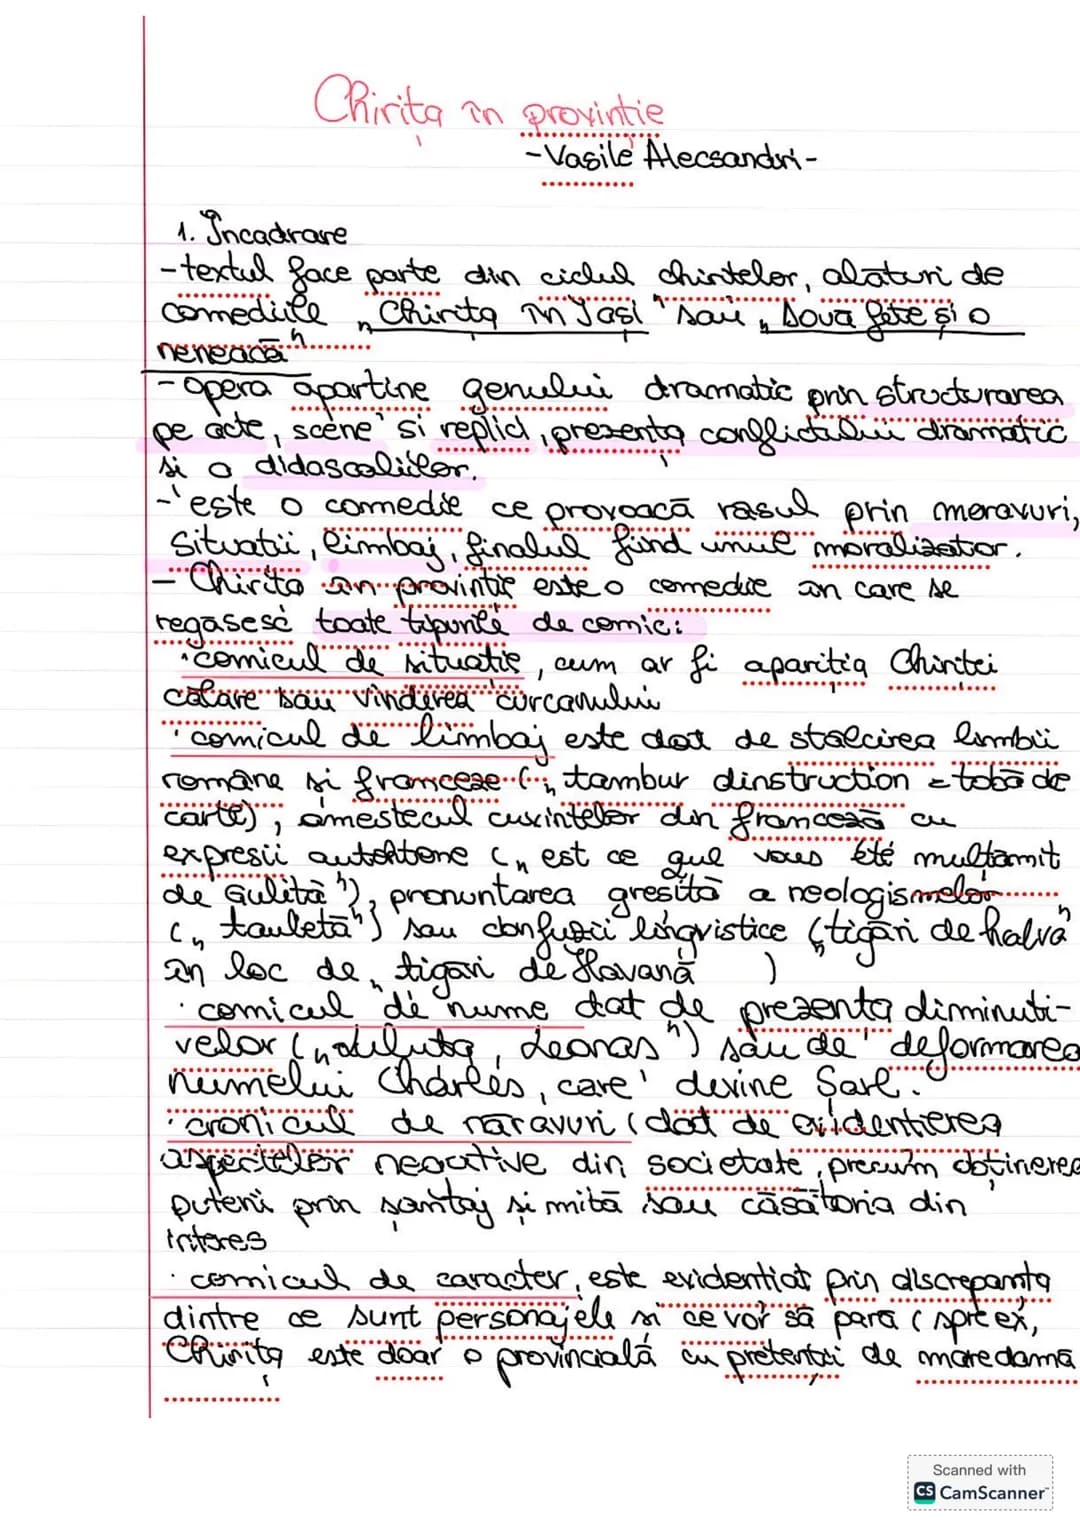 Chirița în provinție
-Vasile Alecsandri-
1. Încadrare
-textul face parte din ciclul chiritelor, alaturi de
comediile „Chirița în Iași" sau „Două fete și o
neneacă"
-opera apartine genului dramatic prin structurarea
pe acte, scene si replici, prezența conflictului dramatic
și a didascaliilor.
-este o comedie ce provoacă rasul prin moravuri,
situatii, limbaj, finalul fiind unul moralizator.
- Chirita în provintie este o comedie în care se
regasesc toate tipurile de comic:
·comicul de situatie, cum ar fi aparitia Chiritei
călare sau vinderea curcanului
·comicul de limbaj este dat de stalcirea limbii
române si franceze („tambur dinstruction = tobă de
carte), amestecul cuvintelor din franceză cu
expresii autohtone („est ce que vous été multămit
de Guliță"), pronuntarea gresită a neologismelor
(„tauletă") sau confuzii lingvistice (țigări de halva"
în loc de „tigari de Havană )
·comicul de nume dat de prezenta diminuti-
velor („Aluluta, Leonas") sau de deformarea
numelui Charles, care devine Șarl.
·cronicul de năravuri (dat de evidentierea
aspectelor negative din societate, precum obținerea
puterii prin șantaj și mită sau căsătoria din
interes
·comicul de caracter, este evidentiat prin discrepanta
dintre ce sunt personajele si ce vor să pară (spre ex,
Chirița este doar o provincială cu pretenții de mare damă
Scanned with
CS CamScanner